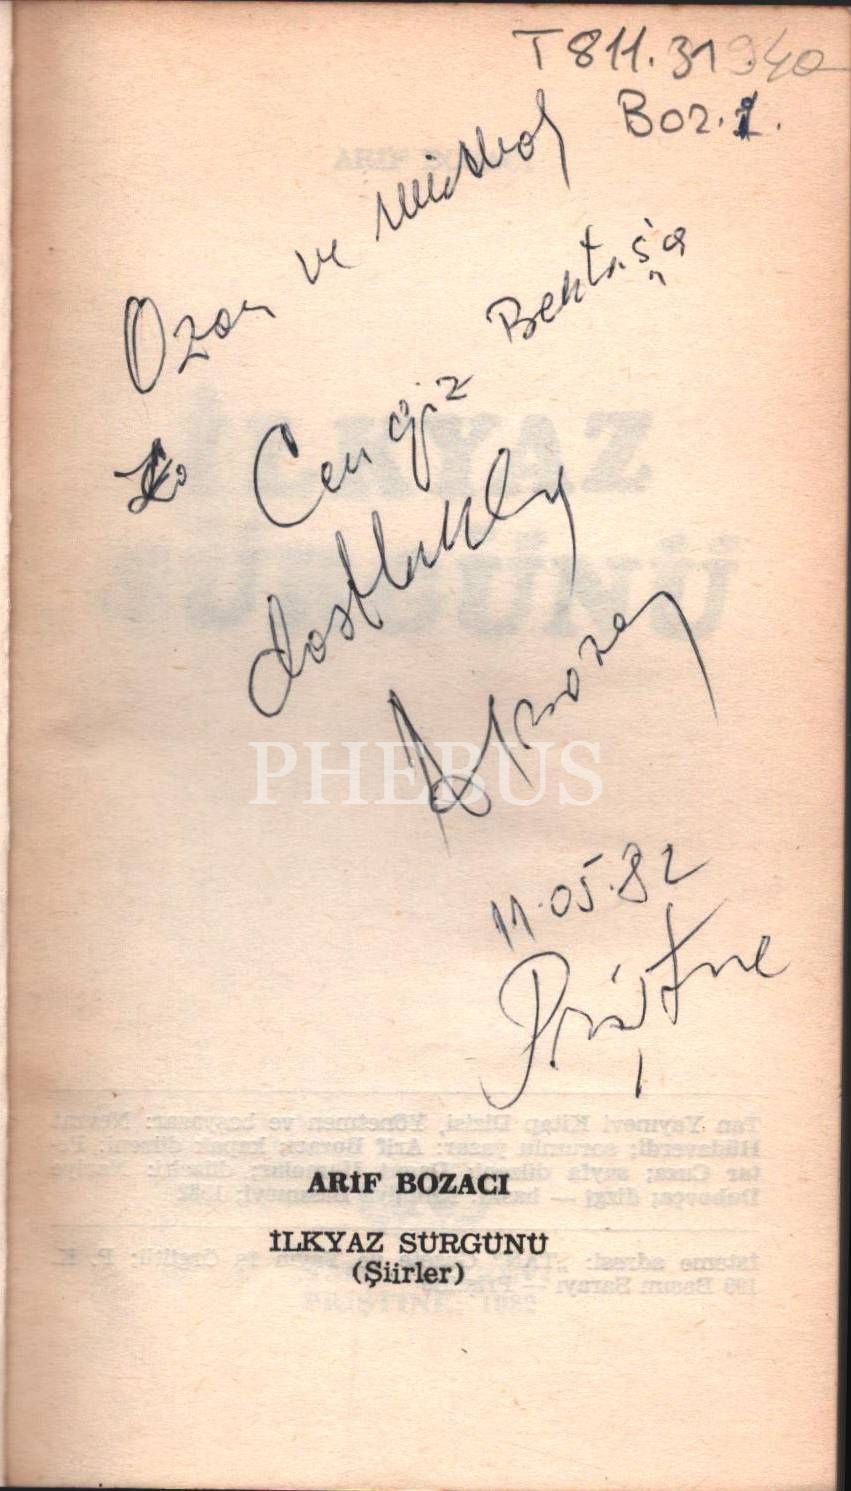 T 811.31 940
Boz. İ.
Ozan ve mimar
Cengiz Bektaş'a
dostlukla
PHEBUS
11.05.82
Priştine
ARİF BOZACI
İLKYAZ SÜRGÜNÜ
(Şiirler)